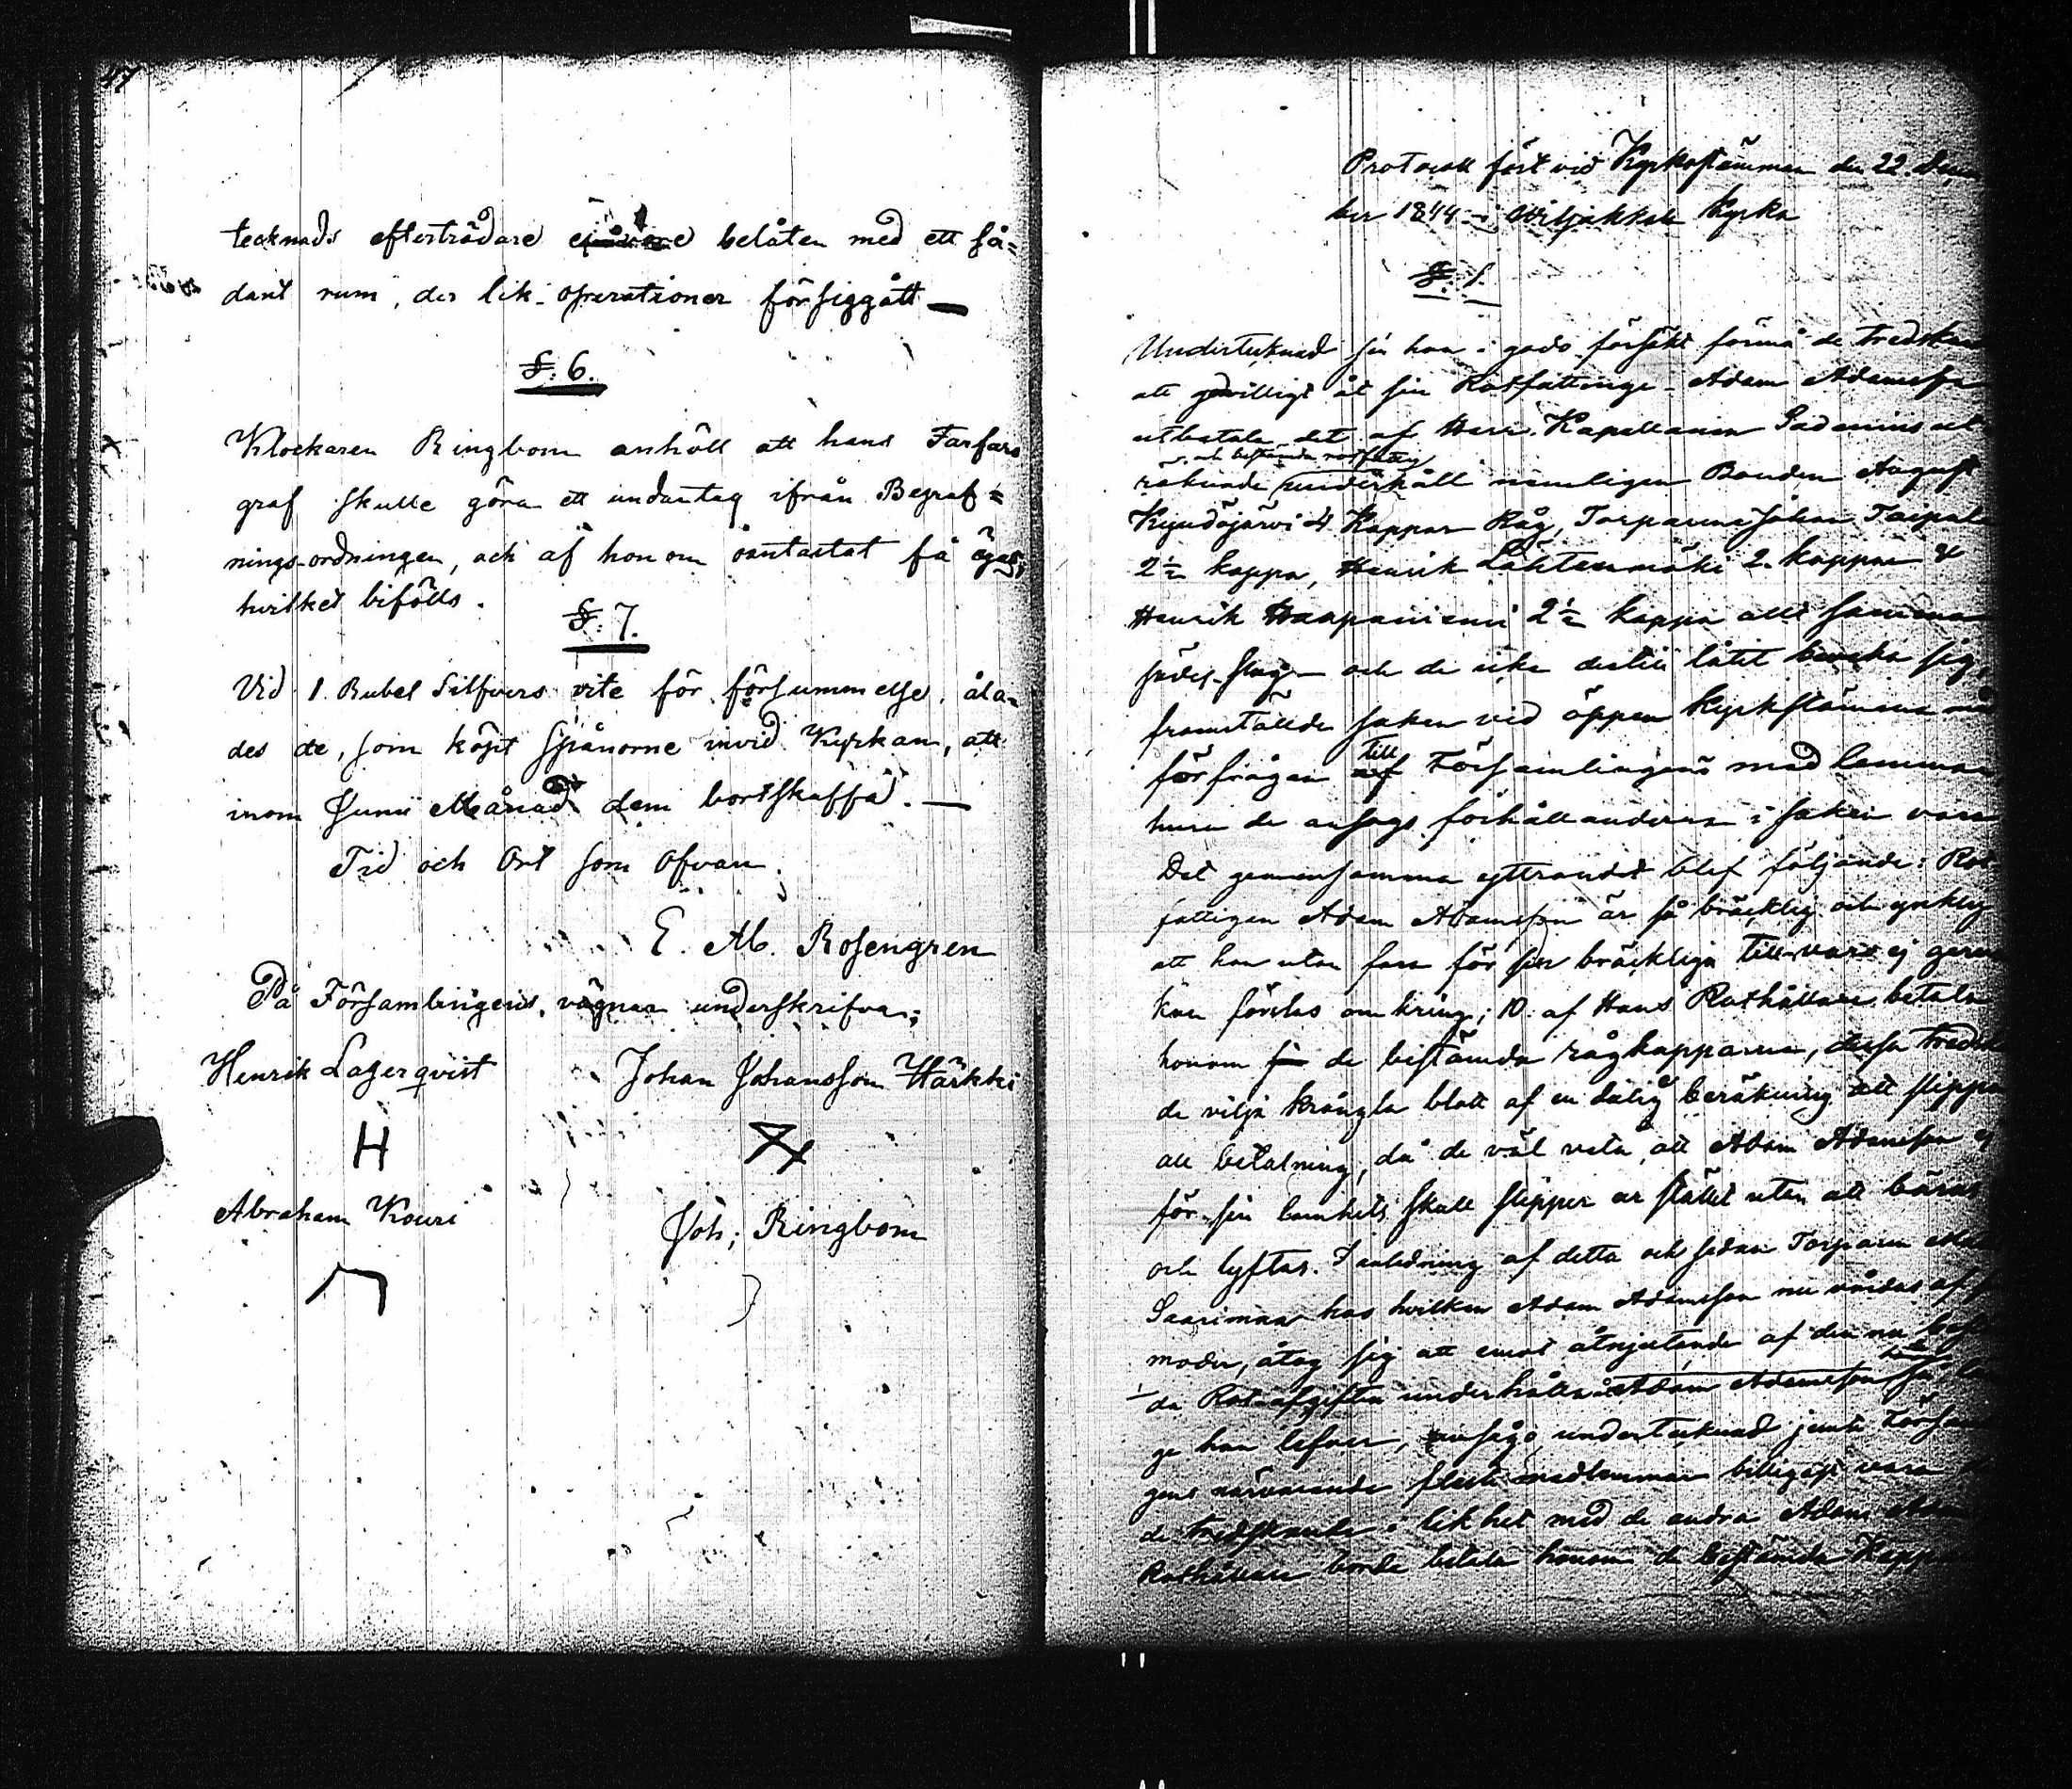 47
tecknads efterträdare ej belåten med ett så=
dant rum, der lik-operationer försiggått —
§. 6.
Klockaren Ringbom anhöll att hans Farfars
graf skulle göra ett undantag ifrån Begraf=
nings-ordningen, och af honom oantastat få ägas,
hvilket bifölls.
§. 7.
Vid 1. Rubel Silfvers vite för försummelse, åla=
des de, som köpt spånorne invid Kyrkan, att
inom Junii Månad dem bortskaffa. —
Tid och Ort som ofvan.
E. M. Rosengren
På Församlingens vägnar underskrifva;
Henrik Lagerqvist Johan Johansson Härkki
H
Abraham Kouri Joh; Ringbom
Protocoll fört vid Kyrkostämman den 22. Decem
ber 1844 i Viljakkala Kyrka
§. 1.
Undertecknad han i godo försökt förmå de tredskan
att godvilligt åt sin Rotfattinge Adam Adamsson
utbetala det af Herr Kapellanen Gadenius ut
och bestämda
räknade underhåll nemligen Bonden August
Kyrdöjärvi 4 Kappar Råg, Torparne Johan Taipale
2½ kappa, Henrik Lähtenmäki 2. kappar &
Henrik Haapaniemi 2½ kappa allt samma
sädes-slag — och de icke dertill låtit beveka sig,
framställde saken vid öppen Kyrkstämma
till
förfrågan af Församlingens medlemmar
huru de ansågo förhållanderna i saken vara
Det gemensamma yttrandet blef följande: Rot
fattigen Adam Adamsson är så bräcklig och ynklig
att han utan fara för sin bräckliga tillvaro ej
kan förslas omkring; 10 af Hans Rothållare betala
honom de bestämda rågkapparne, dessa tredsk
de vilja krångla blott af en dålig beräkning att slippa
all betalning, då de väl veta, att Adam Adamsson ej
för sin lamhets skull slipper ur stället utan att bäras
och lyftas. I anledning af detta och sedan Torparen
Saarimaa hos hvilken Adam Adamsson nu vårdas af
moder, åtog sig att emot åtnjutande af den nu
da Rot-afgiften underhålla Adam Adamsson så län
ge han lefver, ansågo undertecknad jemte Försam
gens närvarande fleste medlemmar billigast vara
de tredskande i likhet med de andra Adam
Rothållare borde betala honom de bestämda Kappar